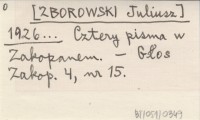 0
[ZBOROWSKI Juliusz]
1926... Cztery pisma w
Zakopanem. — Głos
Zakop. 4, nr 15.
b1/051/0349